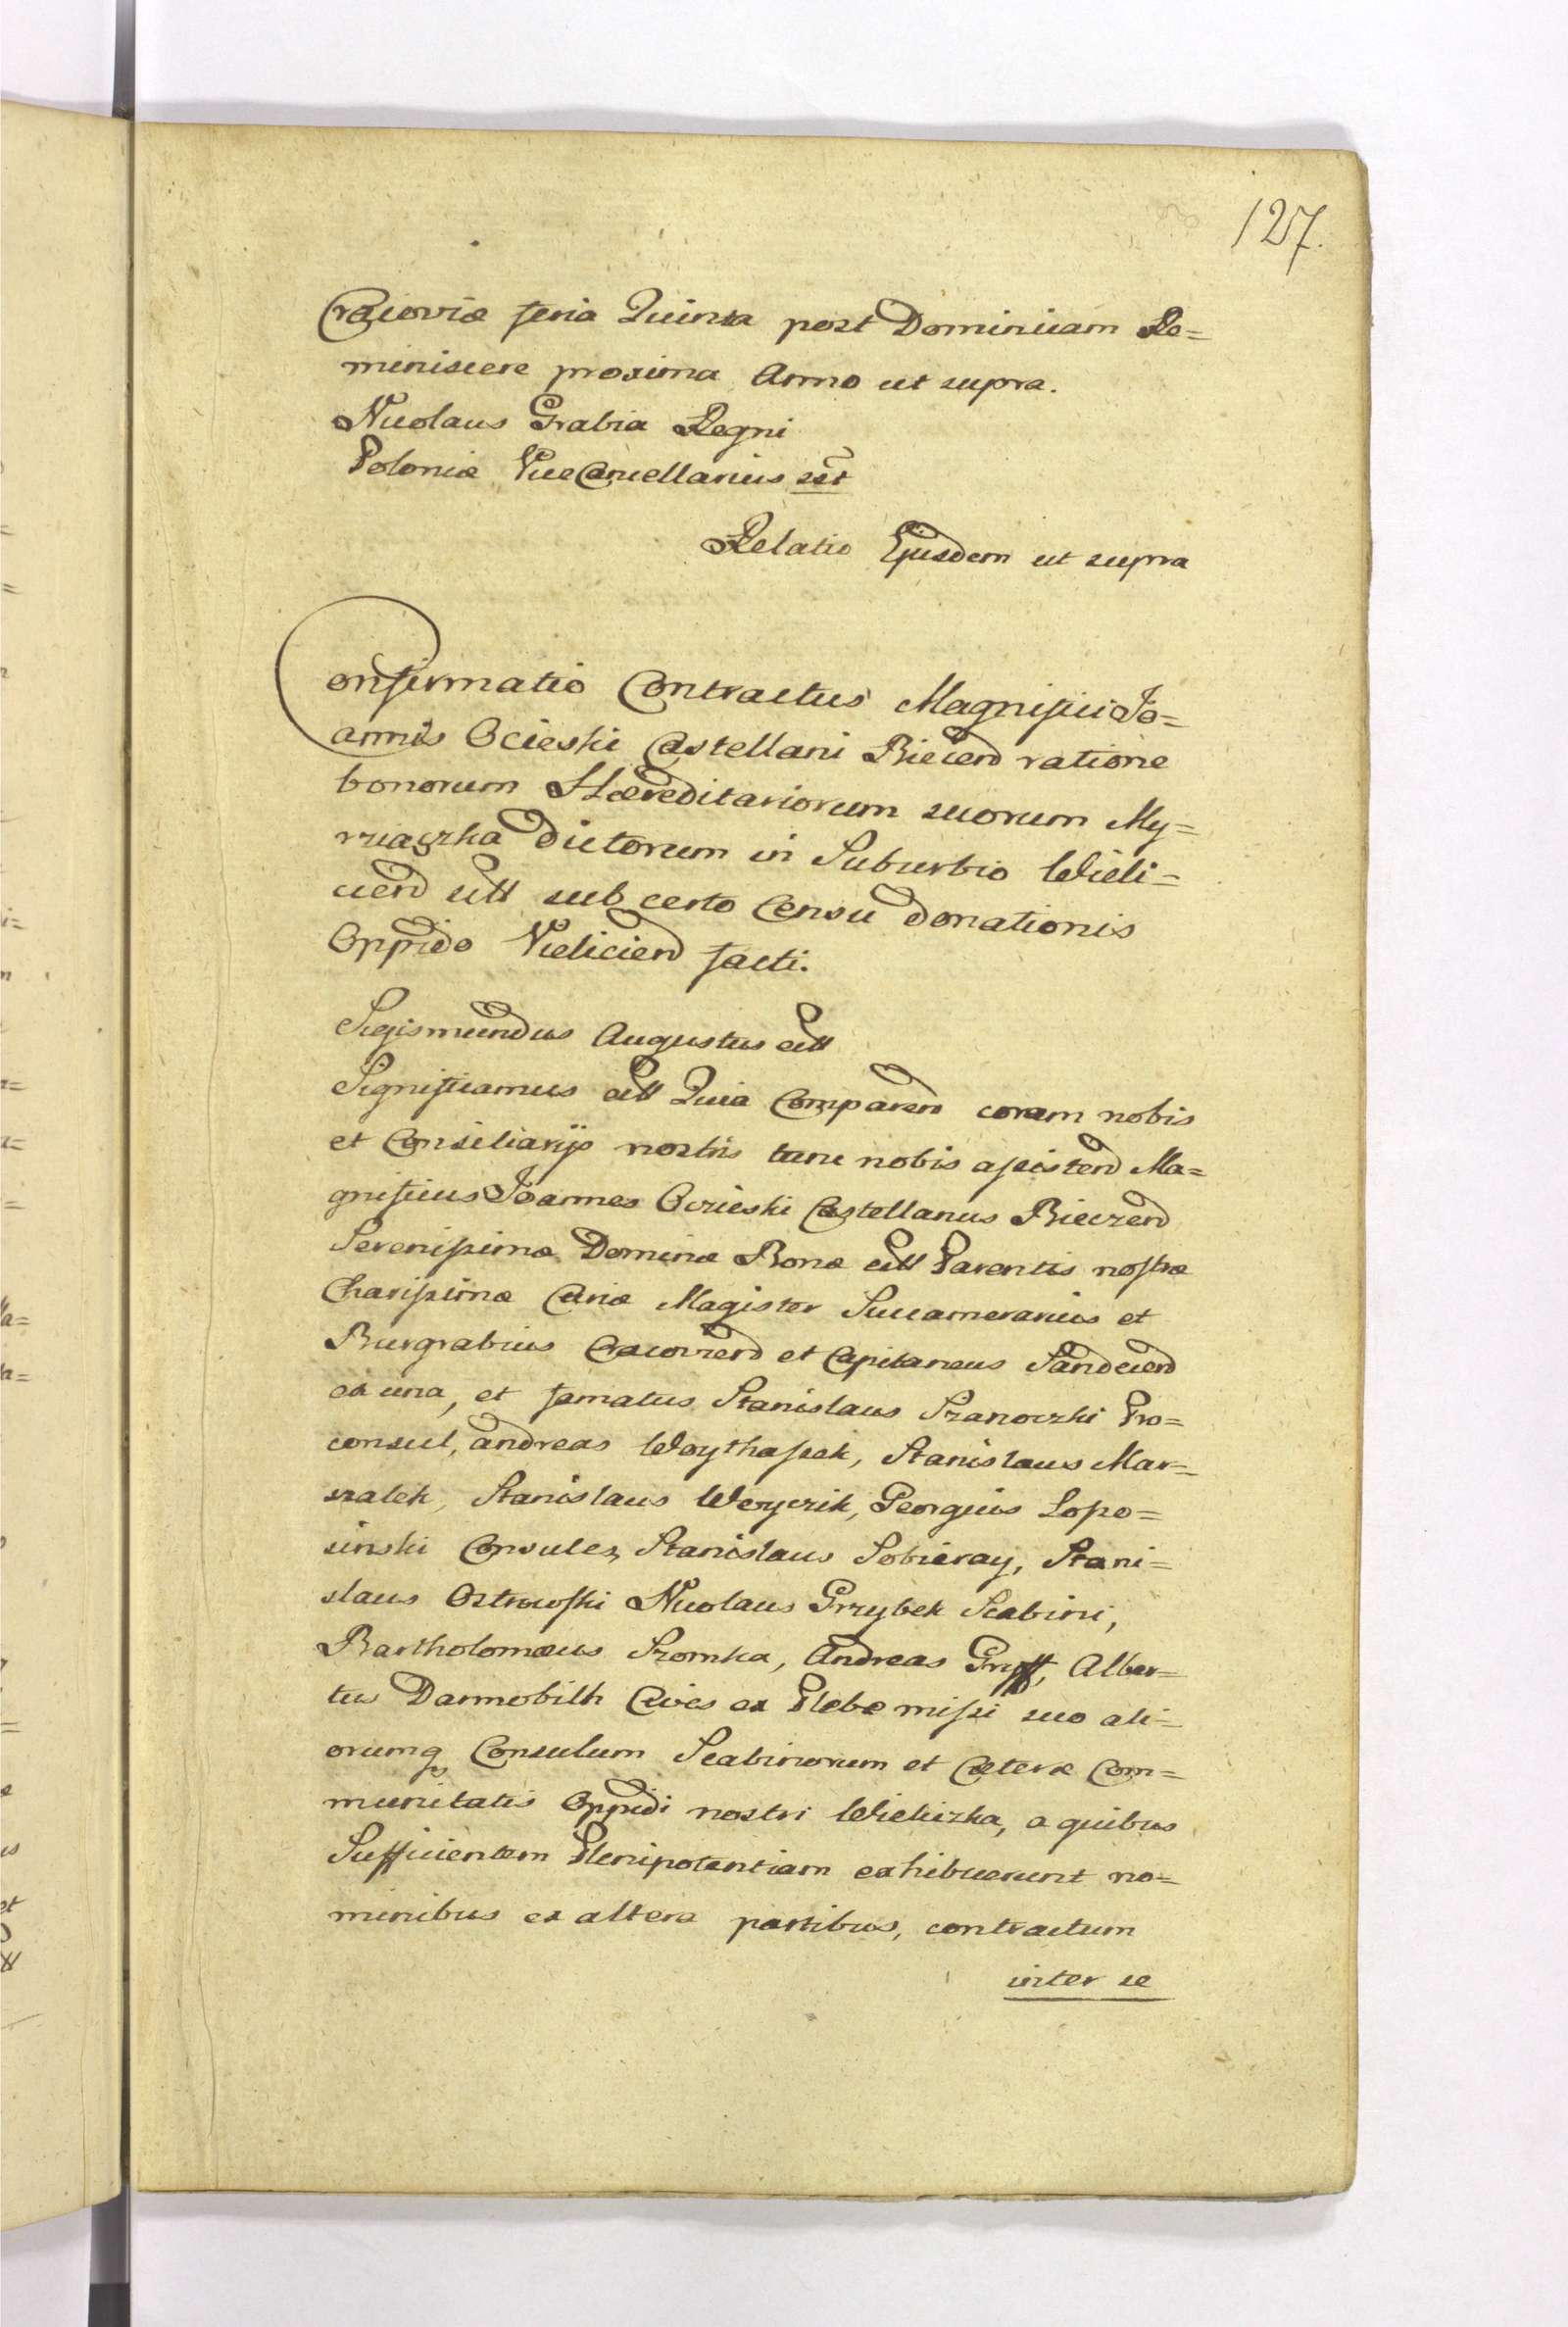 127.
Cracoviæ feria Quinta post Dominicam Re=
miniscere proxima Anno ut supra.
Nicolaus Grabia Regni
Poloniæ ViceCancellarius sst
Relatio Ejusdem ut supra
Confirmatio Contractus Magnifici Jo=
annis Ocieski Castellani Biecen ratione
bonorum Hæreditariorum suorum My=
rziaczka dictorum in Suburbio Wieli=
cien sitt sub certo Censu donationis
Oppido Vielicien facti.
Sigismundus Augustus ett
Significamus ett Quia Comparen coram nobis
et Consiliarijs nostris tunc nobis assisten Ma=
gnificus Joannes Oczieski Castellanus Bieczen
Serenissimæ Dominæ Bonæ ett Parentis nostræ
Charissimæ Curiæ Magister Succamerarius et
Burgrabius Cracovien et Capitaneus Sandecen
ex una, et famatus Stanislaus Szanoczki Pro=
consul, Andreas Woythaszek, Stanislaus Mar=
szalek, Stanislaus Weyczik, Georgius Lopo=
sinski Consules, Stanislaus Sobieray, Stani=
slaus Ostrowski Nicolaus Grzybek Scabini,
Bartholomæus Szomka, Andreas Gryff, Alber=
tus Darmobith Cives ex Plebe missi suo ali=
orumq Consulum Scabinorum et Cæteræ Com=
munitatis Oppidi nostri Wieliczka, a quibus
Sufficientem Plenipotentiam exhibuerunt no=
minibus ex altera partibus, contractum
inter se